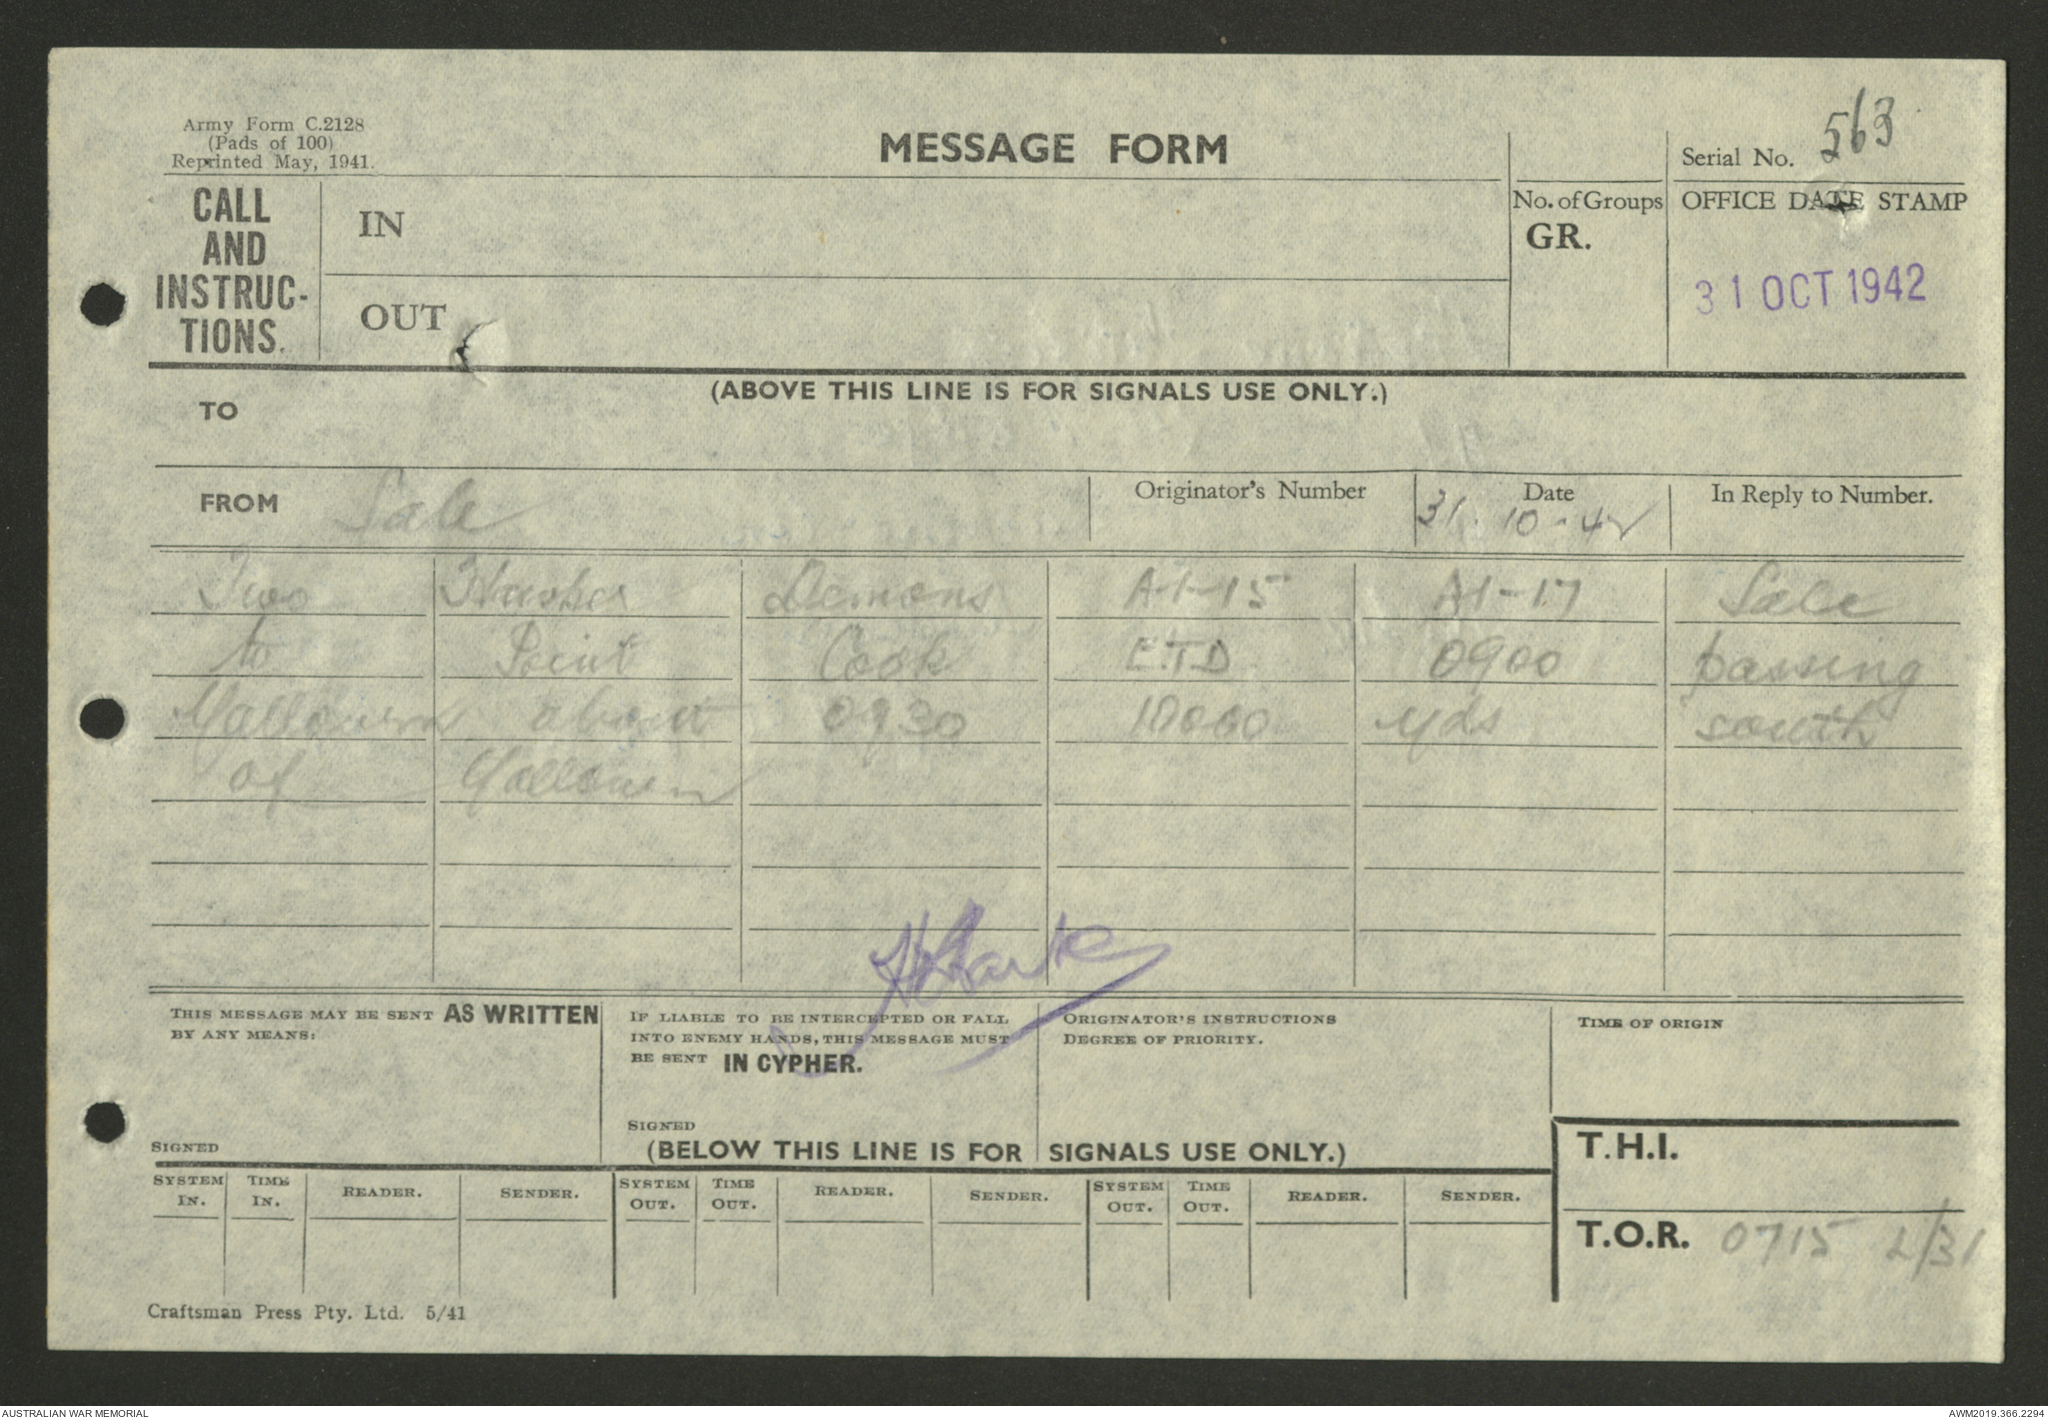 Army Form C.2128
(Pads of 100)
Reprinted May, 1941.
MESSAGE FORM
Serial No. 563
CALL
AND
INSTRUC-
TIONS.
IN
OUT
No. of Groups
GR.
OFFICE DATE STAMP
31 OCT 1942
(ABOVE THIS LINE IS FOR SIGNALS USE ONLY.)
TO
FROM Sale
Originator's Number
Date
31.10.42
In Reply to Number.
Two Hawker Demons A1-15 A1-17 Sale
to Point Cook ETD 0900 passing
Yallourn about 0930 10000 yds south
of Yallourn
THIS MESSAGE MAY BE SENT AS WRITTEN
BY ANY MEANS:
SIGNED
IF LIABLE TO BE INTERCEPTED OR FALL
INTO ENEMY HANDS, THIS MESSAGE MUST
BE SENT IN CYPHER.
SIGNED
ORIGINATOR'S INSTRUCTIONS
DEGREE OF PRIORITY.
TIME OF ORIGIN
(BELOW THIS LINE IS FOR SIGNALS USE ONLY.)
T.H.I.
SYSTEM IN. TIME IN. READER. SENDER. SYSTEM OUT. TIME OUT. READER. SENDER. SYSTEM OUT. TIME OUT. READER. SENDER.
T.O.R. 0715 L/31
Craftsman Press Pty. Ltd. 5/41
AUSTRALIAN WAR MEMORIAL
AWM2019.366.2294